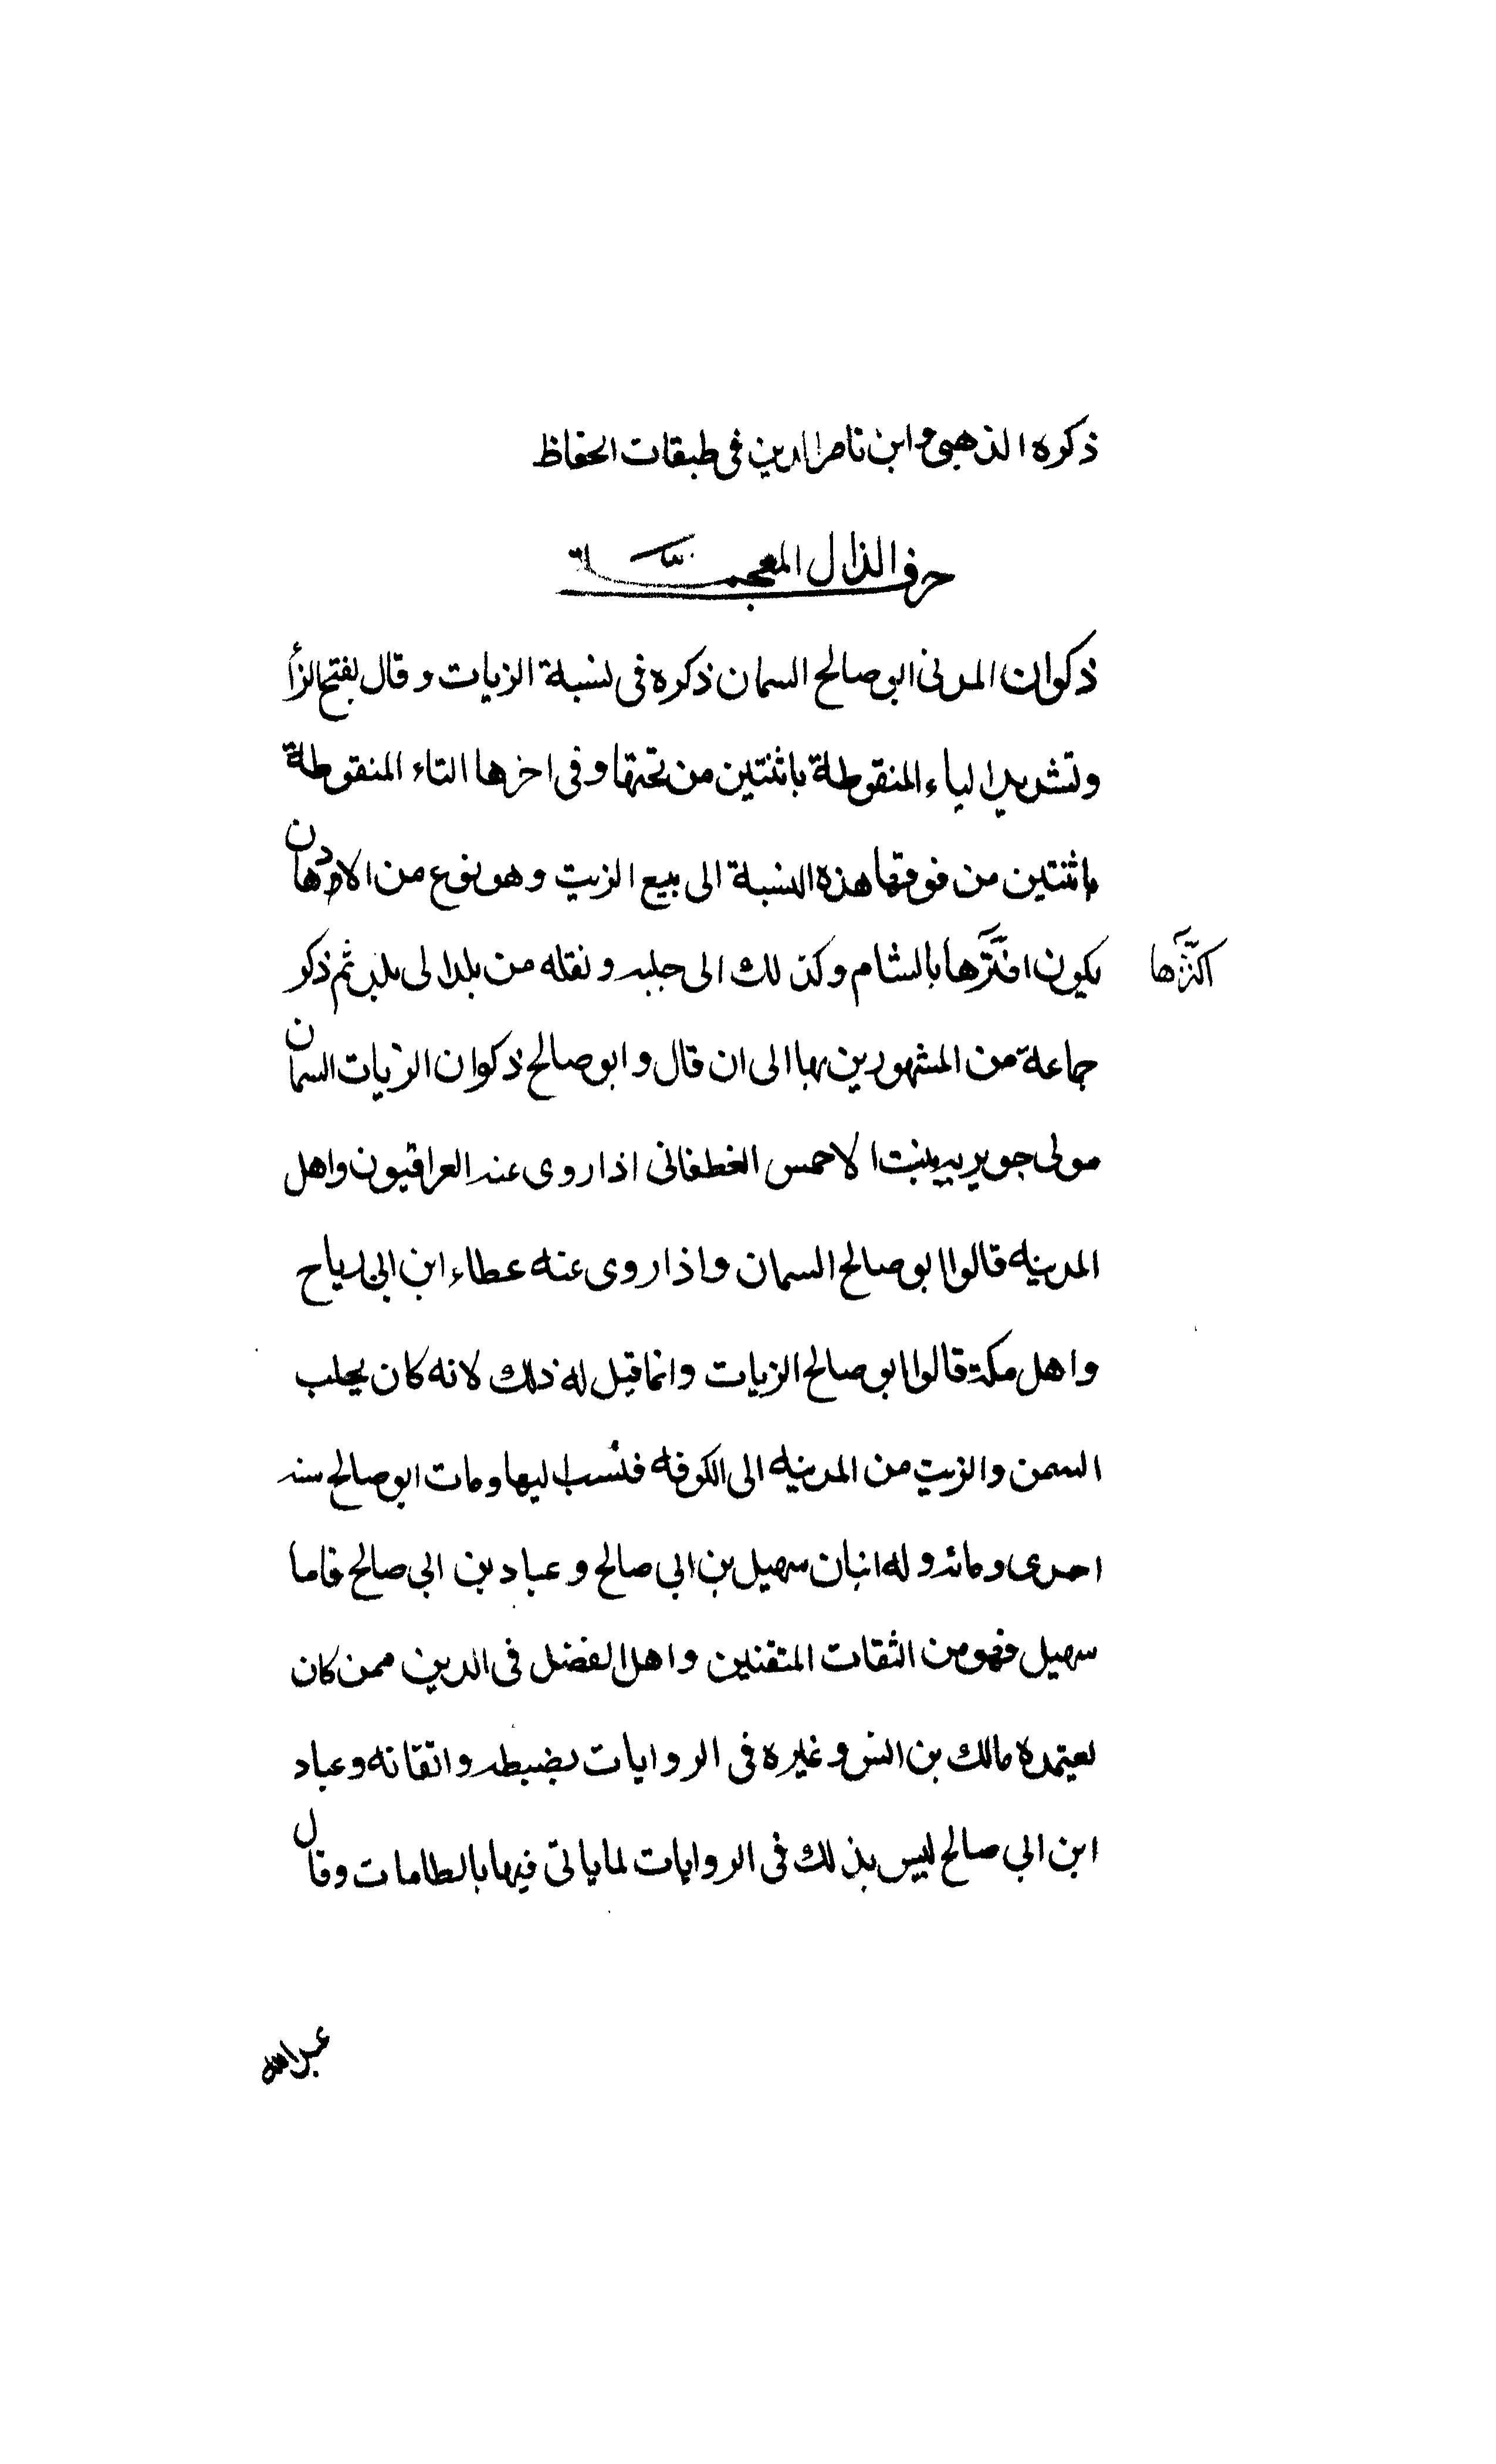 ذكره الذهبي وابن ناصر الدين في طبقات الحفاظ
حرف الذال المعجمة
ذكوان المدني ابو صالح السمان ذكره في نسبة الزيات وقال بفتح الزا
وتشديد الياء المنقوطة باثنتين من تحتها وفي اخرها التاء المنقوطة
باثنتين من فوقها هذه النسبة الى بيع الزيت وهو نوع من الادهان
يكون اكثرها بالشام وكذلك الى جلبه ونقله من بلد الى بلد ثم ذكر
اكثرها
جماعة من المشهورين بها الى ان قال وابو صالح ذكوان الزيات السمان
مولى جويريه بنت الاحمس الغطفانى اذا روى عنه العراقيون واهل
المدينه قالوا ابو صالح السمان واذا روى عنه عطاء ابن ابي رياح
واهل مكة قالوا ابو صالح الزيات وانما قيل له ذلك لانه كان يجلب
السمن والزيت من المدينه الى الكوفه فنسب ليها ومات ابو صالح سنه
احدى ومائه وله ابنان سهيل بن ابي صالح وعباد بن ابي صالح فاما
سهيل فهو من الثقات المتقنين واهل الفضل في الدين ممن كان
يعتمده مالك بن انس وغيره في الروايات بضبطه واتقانه وعباد
ابن ابي صالح ليس بذلك في الروايات لما ياتي فيها بالطامات وقال
عبد الله